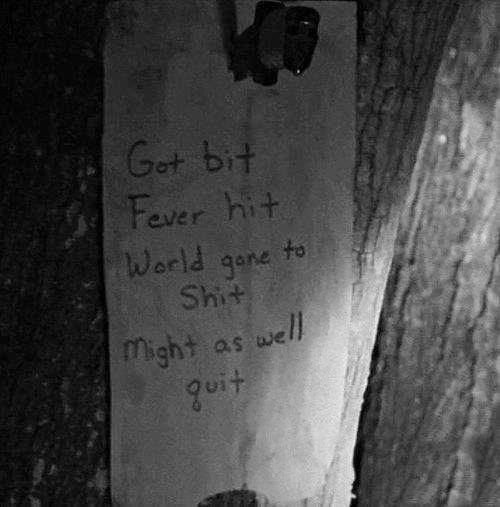 Got bit
Fever hit
World gone to
Shit
Might as well
quit